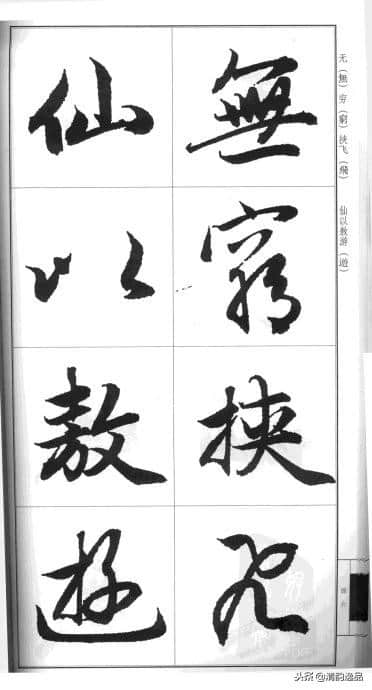 无（無）穷（窮）挟飞（飛）　仙以敖游（遊）
無窮挾飛
仙以敖遊
头条@清韵逸品